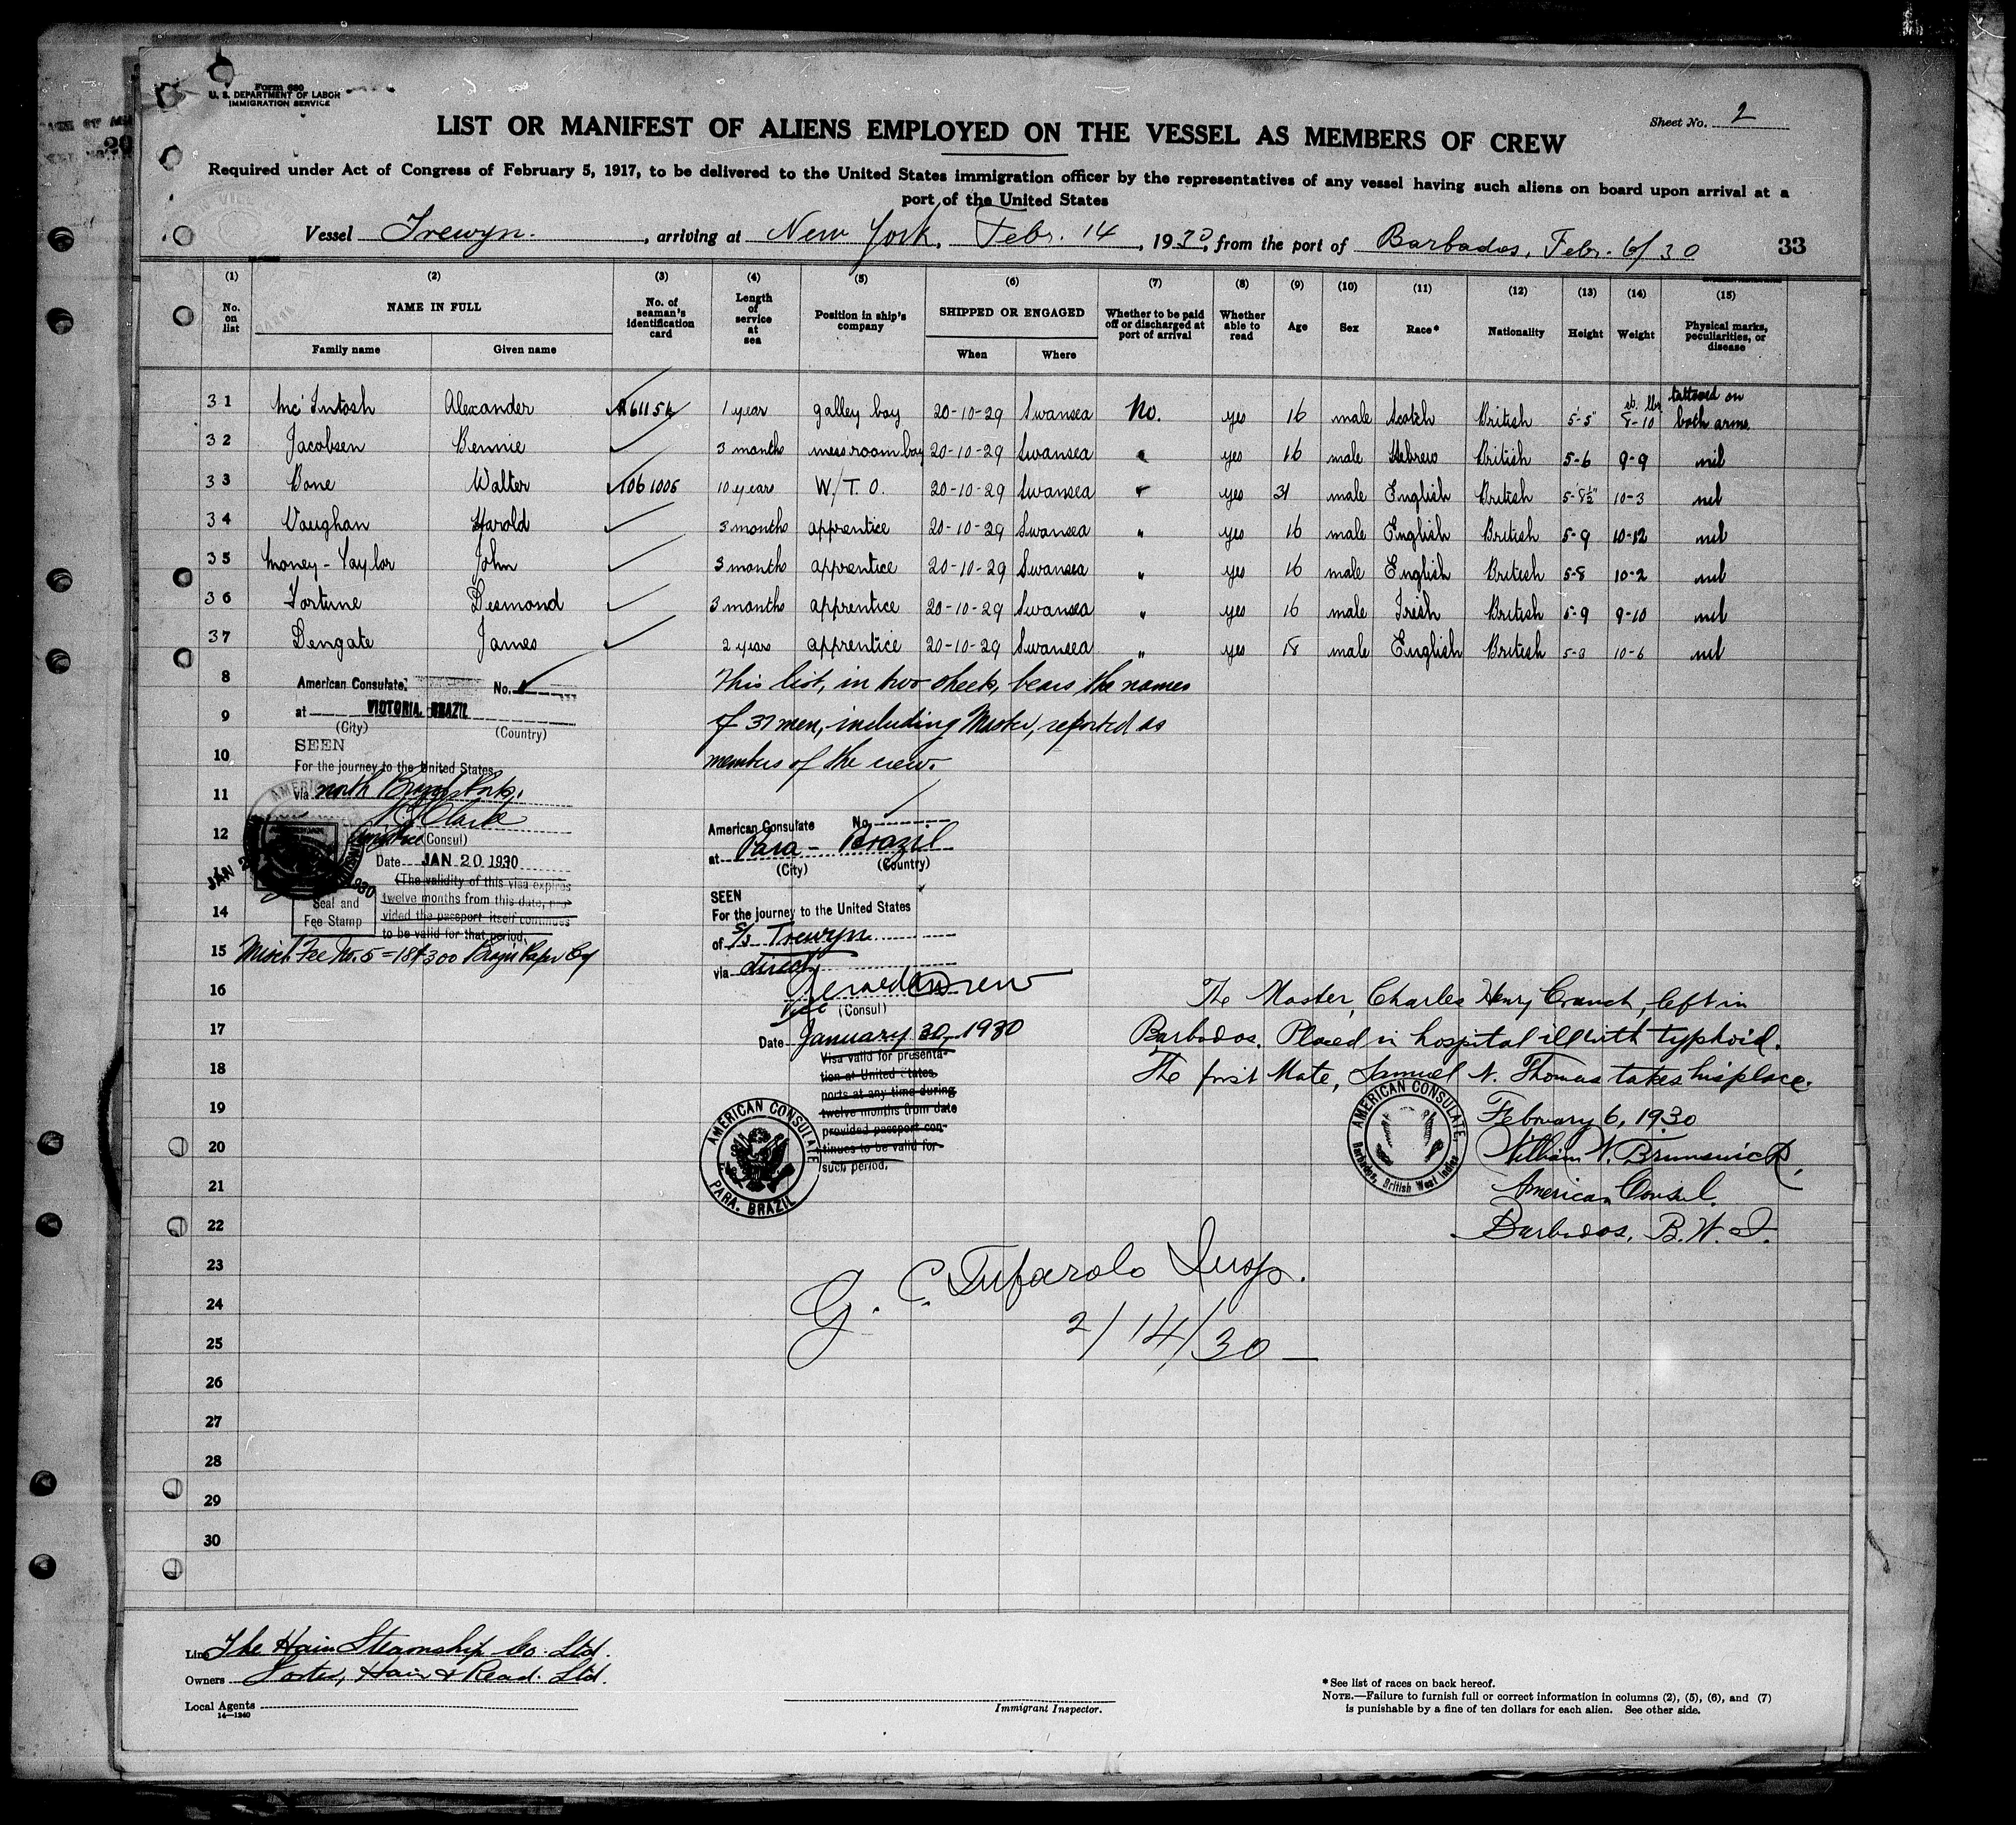 Form 680
U. S. DEPARTMENT OF LABOR
IMMIGRATION SERVICE
Sheet No. 2
LIST OR MANIFEST OF ALIENS EMPLOYED ON THE VESSEL AS MEMBERS OF CREW
Required under Act of Congress of February 5, 1917, to be delivered to the United States immigration officer by the representatives of any vessel having such aliens on board upon arrival at a
port of the United States
Vessel Trewyn, arriving at New York, Febr. 14, 1930, from the port of Barbados, Febr. 6/30 33
(1) (2) (3) (4) (5) (6) (7) (8) (9) (10) (11) (12) (13) (14) (15)
No. on list NAME IN FULL Family name Given name No. of seaman's identification card Length of service at sea Position in ship's company SHIPPED OR ENGAGED When Where Whether to be paid off or discharged at port of arrival Whether able to read Age Sex Race* Nationality Height Weight Physical marks, peculiarities, or disease
31 Mc'Intosh Alexander 1 year galley boy 20-10-29 Swansea No. yes 16 male Scotch British 5-5" st. lbs 8-10 tattooed on both arms
32 Jacobsen Bennie 3 months messroom boy 20-10-29 Swansea " yes 16 male Hebrew British 5-6 9-9 nil
33 Bone Walter 1061006 10 years W/T. O. 20-10-29 Swansea " yes 31 male English British 5-8½" 10-3 nil
34 Vaughan Harold 3 months apprentice 20-10-29 Swansea " yes 16 male English British 5-9 10-12 nil
35 Money-Taylor John 3 months apprentice 20-10-29 Swansea " yes 16 male English British 5-8 10-2 nil
36 Fortune Desmond 3 months apprentice 20-10-29 Swansea " yes 16 male Irish British 5-9 9-10 nil
37 Dengate James 2 years apprentice 20-10-29 Swansea " yes 18 male English British 5-8 10-6 nil
8
9
10
11
12
14
15
16
17
18
19
20
21
22
23
24
25
26
27
28
29
30
This list, in two sheets, bears the names
of 37 men, including Master, reported as
members of the crew.
American Consulate No.
at VICTORIA, BRAZIL
(City) (Country)
SEEN
For the journey to the United States
via north Brazil Ports.
Clark
(Consul)
Date JAN 20 1930
(The validity of this visa expires
twelve months from this date, pro-
vided the passport itself continues
to be valid for that period.
Seal and
Fee Stamp
Fee No. 5 = 18$300
American Consulate No.
at Para - Brazil
(City) (Country)
SEEN
For the journey to the United States
of S/S Trewyn
via direct
Gerald A Drew
Vice (Consul)
Date January 30, 1930
Visa valid for presenta-
tion at United States
ports at any time during
twelve months from date
provided passport con-
tinues to be valid for
such period.
AMERICAN CONSULATE
PARA, BRAZIL
The Master, Charles Henry Cranch, left in
Barbados. Placed in hospital ill with typhoid.
The first Mate, Samuel N. Thomas takes his place.
AMERICAN CONSULATE,
Barbados, British West Indies
February 6, 1930
William W. Brunswick,
American Consul.
Barbados, B. W. I.
G. C. Tufarolo Insp.
2/14/30
Line The Hain Steamship Co. Ltd.
Owners Foster, Hain & Read. Ltd.
Local Agents
14—1240
Immigrant Inspector.
* See list of races on back hereof.
NOTE.—Failure to furnish full or correct information in columns (2), (5), (6), and (7)
is punishable by a fine of ten dollars for each alien. See other side.